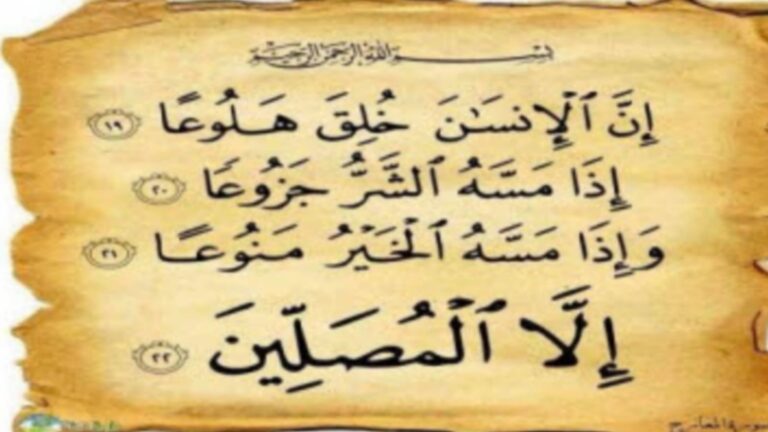 بِسْمِ اللَّهِ الرَّحْمَنِ الرَّحِيمِ
إِنَّ ٱلْإِنسَٰنَ خُلِقَ هَلُوعًا ١٩
إِذَا مَسَّهُ ٱلشَّرُّ جَزُوعًا ٢٠
وَإِذَا مَسَّهُ ٱلْخَيْرُ مَنُوعًا ٢١
إِلَّا ٱلْمُصَلِّينَ ٢٢
سورة المعارج